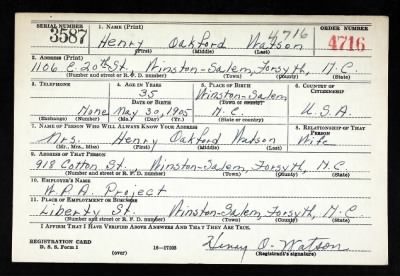 SERIAL NUMBER
1. NAME (Print)
ORDER NUMBER
3587
4716
Henry Oakford Watson
4716
(First) (Middle) (Last)
2. ADDRESS (Print)
1106 E. 20th St. Winston-Salem, Forsyth, N.C.
(Number and street or R. F. D. number) (Town) (County) (State)
3. TELEPHONE
4. AGE IN YEARS
5. PLACE OF BIRTH
6. COUNTRY OF CITIZENSHIP
35
Winston-Salem
DATE OF BIRTH
(Town or county)
None
May 30, 1905
N.C.
U.S.A.
(Exchange) (Number)
(Mo.) (Day) (Yr.)
(State or country)
7. NAME OF PERSON WHO WILL ALWAYS KNOW YOUR ADDRESS
8. RELATIONSHIP OF THAT PERSON
Mrs. Henry Oakford Watson
Wife
(Mr., Mrs., Miss) (First) (Middle) (Last)
9. ADDRESS OF THAT PERSON
918 Cotton St. Winston-Salem, Forsyth, N.C.
(Number and street or R. F. D. number) (Town) (County) (State)
10. EMPLOYER'S NAME
W.P.A. Project
11. PLACE OF EMPLOYMENT OR BUSINESS
Liberty St. Winston-Salem, Forsyth, N.C.
(Number and street or R. F. D. number) (Town) (County) (State)
I AFFIRM THAT I HAVE VERIFIED ABOVE ANSWERS AND THAT THEY ARE TRUE.
REGISTRATION CARD
D. S. S. Form 1
(over)
16-17105
Henry O. Watson
(Registrant's signature)